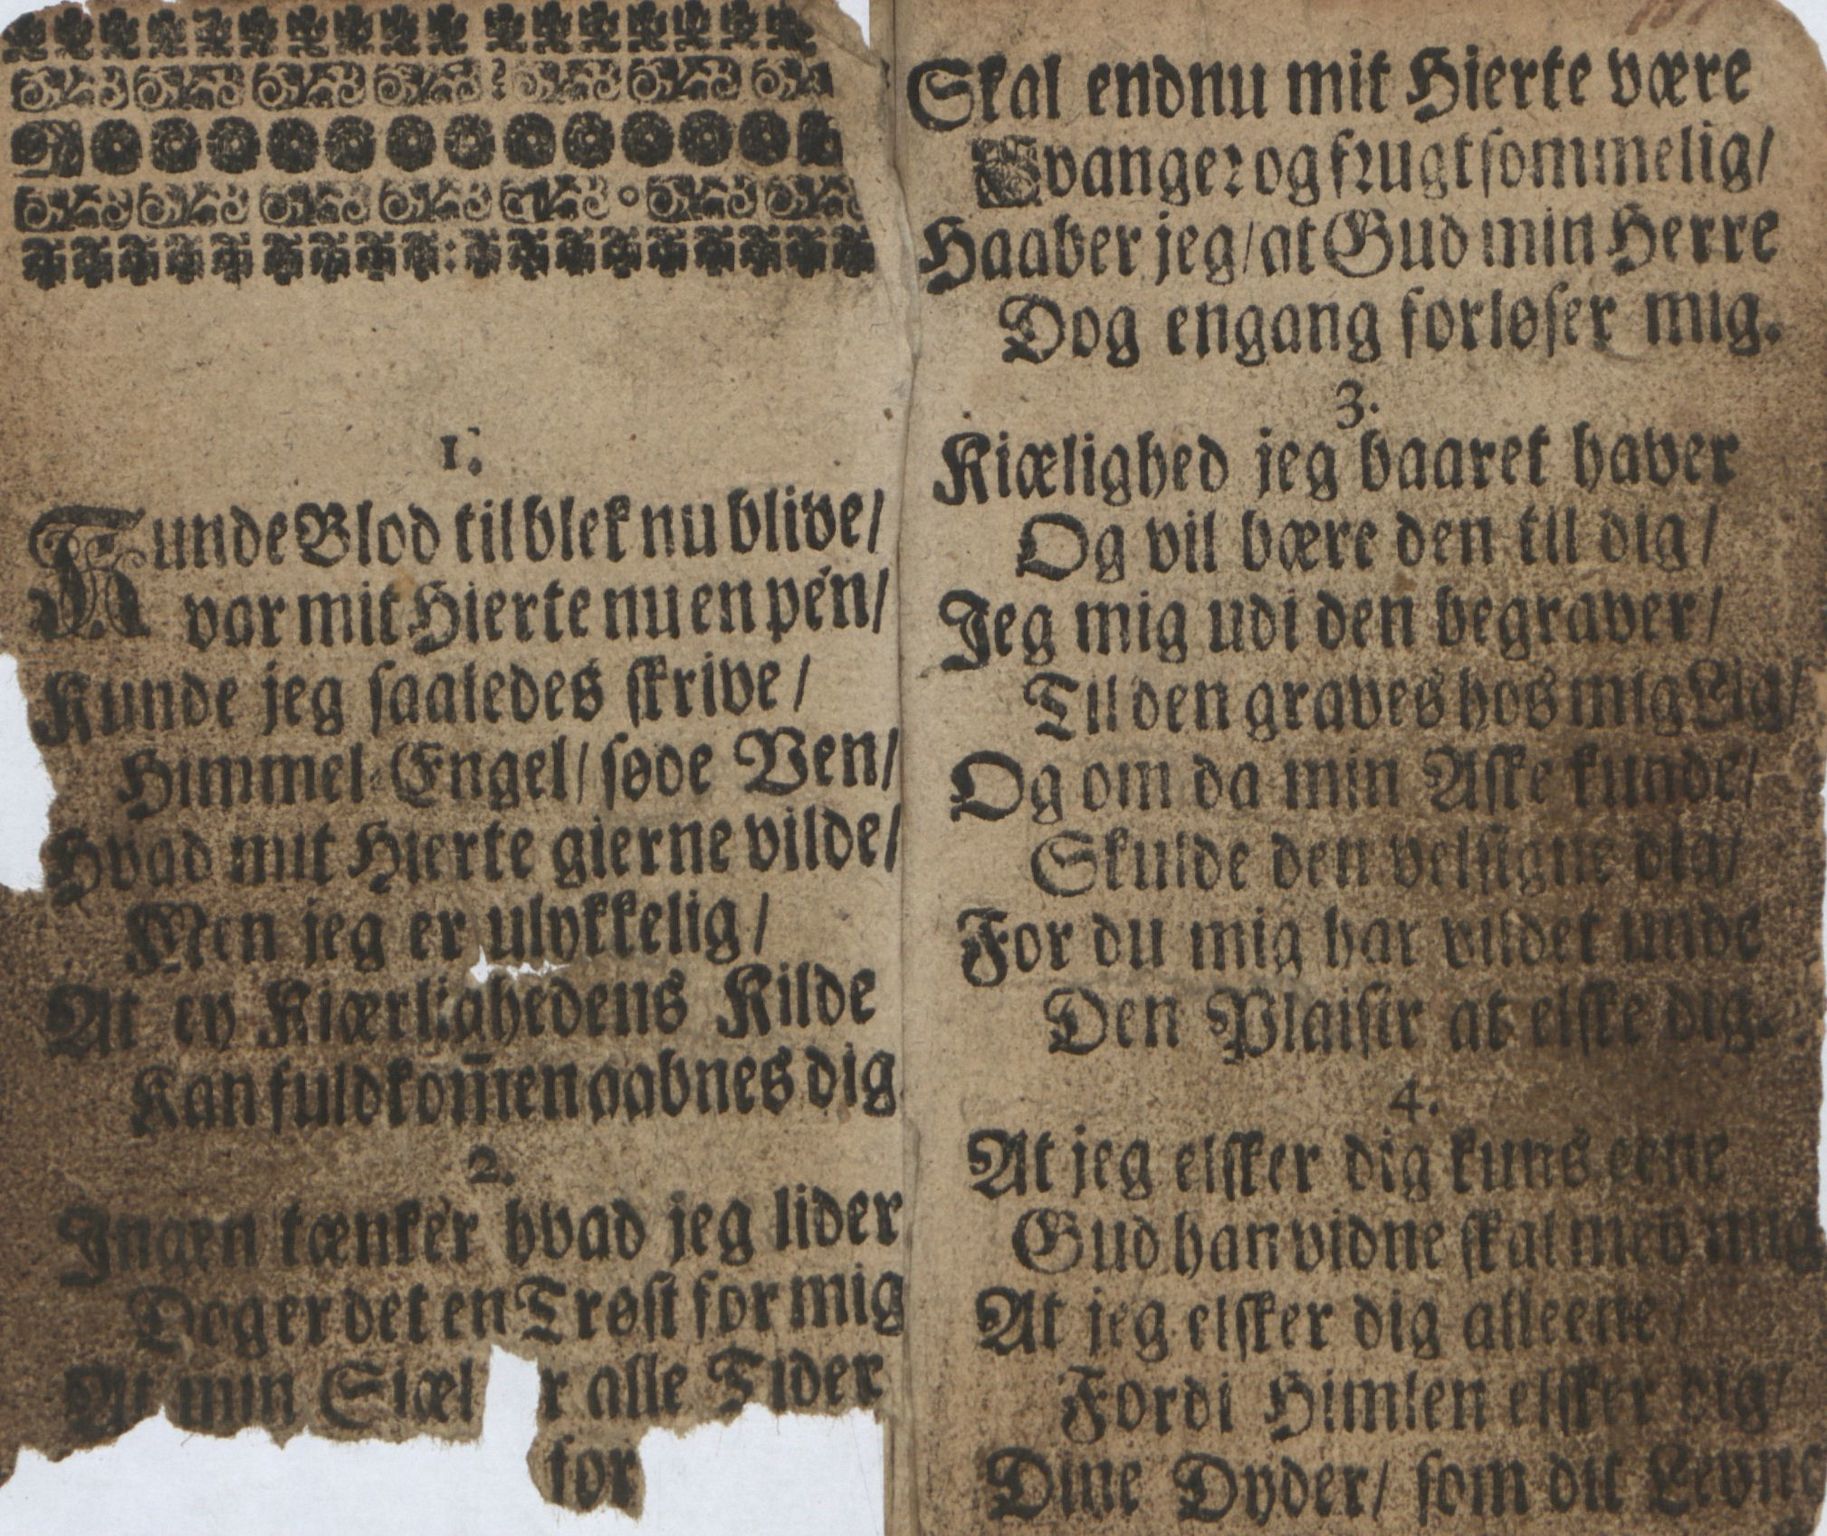 1.
Kunde Blod til blek nu blive/
var mit Hierte nu en pen/
Kunde jeg saaledes skrive/
Himmel-Engel/ søde Ven/
Hvad mit Hierte gierne vilde/
Men jeg er ulykkelig/
At ey Kiærlighedens Kilde
Kan fuldkom̅en aabnes dig
2.
Ingen tænker hvad jeg lider
Dog er det en Trøst for mig
At min Siæl r alle Tider
for
Skal endnu mit Hierte være
Svanger og frugtsommelig/
Haaber jeg/ at Gud min Herre
Dog engang forløser mig.
3.
Kiælighed jeg baaret haver
Og vil bære den til dig/
Jeg mig udi den begraver/
Til den graves hos mig Lig/
Og om da min Aske kunde/
Skulde den velsigne dig/
For du mig har vildet unde
Den Plaisir at elske dig.
4.
At jeg elsker dig kuns eene
Gud han vidne skal med mig
At jeg elsker dig alleene/
Fordi Himlen elsker dig/
Dine Dyder/ som dit Levne